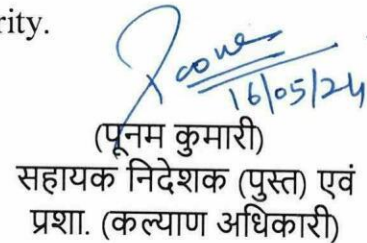 rity.
16/05/24
(पूनम कुमारी)
सहायक निदेशक (पुस्त) एवं
प्रशा. (कल्याण अधिकारी)